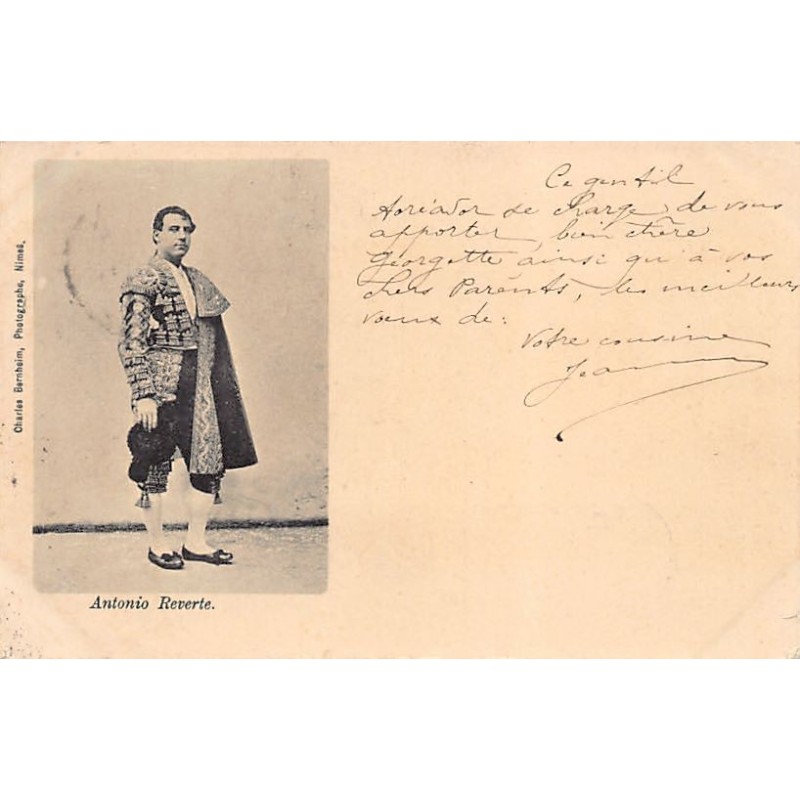 Charles Bernheim, Photographe, Nimes,
Antonio Reverte.
Ce gentil
toréador se charge de vous
apporter, bien chère
Georgette ainsi qu'à vos
chers Parents, les meilleurs
voeux de:
Votre cousine
Jeanne